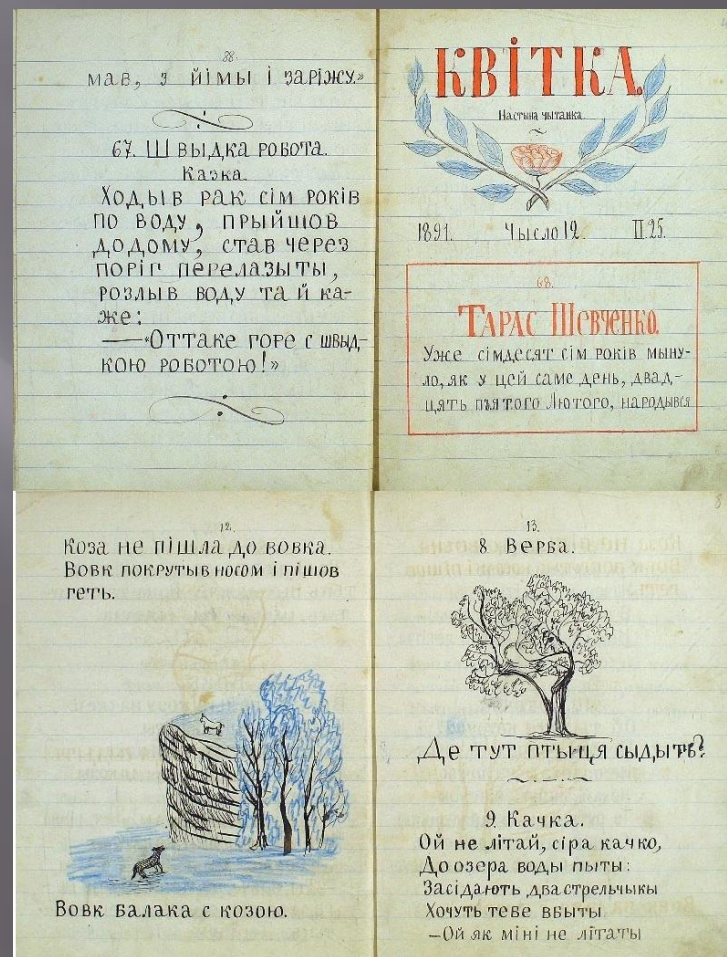 38.
мав, з йімы і заріжу.»
67. Швыдка робота.
Казка.
Ходыв рак сім років
по воду, прыйшов
додому, став через
поріг перелазыты,
розлыв воду та й ка-
же:
—«Оттаке горе с швыд-
кою роботою!»
КВІТКА.
Настина чытанка.
1891. Чысло 12. II 25.
68.
Тарас Шевченко.
Уже сімдесят сім років мыну-
ло, як у цей саме день, двад-
цять пъятого Лютого, народывся
12.
Коза не пішла до вовка.
Вовк покрутыв носом і пішов
геть.
Вовк балака с козою.
13.
8. Верба.
Де тут птыця сыдыть?
9. Качка.
Ой не літай, сіра качко,
До озера воды пыты:
Засідають два стрельчыкы
Хочуть тебе вбыты
—Ой як міні не літаты